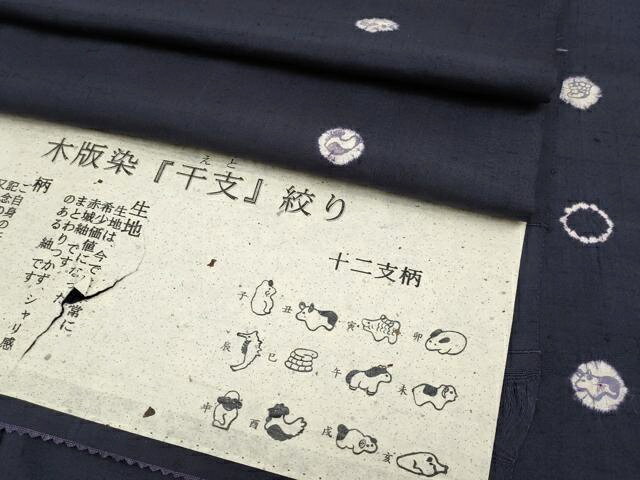 木版染『干支』絞り
えと
生地
生地は今で
常に
希少価値になった
赤城紬
シャリ感
まとわりつかず
のある紬です
柄
ご自身の
記念の
又
十二支柄
子 丑 寅 卯
辰 巳 午 未
申 酉 戌 亥